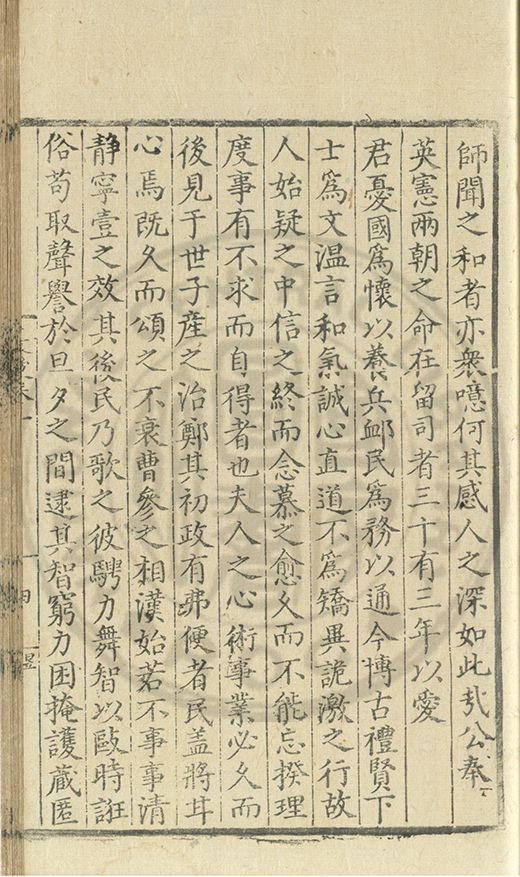 師聞之和者亦衆噫何其感人之深如此㢤公奉
英憲兩朝之命在留司者三十有三年以愛
君憂國爲懷以養兵䘏民爲務以通今博古禮賢下
士爲文溫言和氣誠心直道不爲矯異詭激之行故
人始疑之中信之終而念慕之愈久而不能忘揆理
度事有不求而自得者也夫人之心術事業必久而
後見于世子產之治鄭其初政有弗便者民盖將耳
心焉旣久而頌之不衰曹參之相漢始若不事事清
靜寧壹之效其後民乃歌之彼騁力舞智以敺時誑
俗苟取聲譽於旦夕之間逮其智窮力困掩護蔵匿